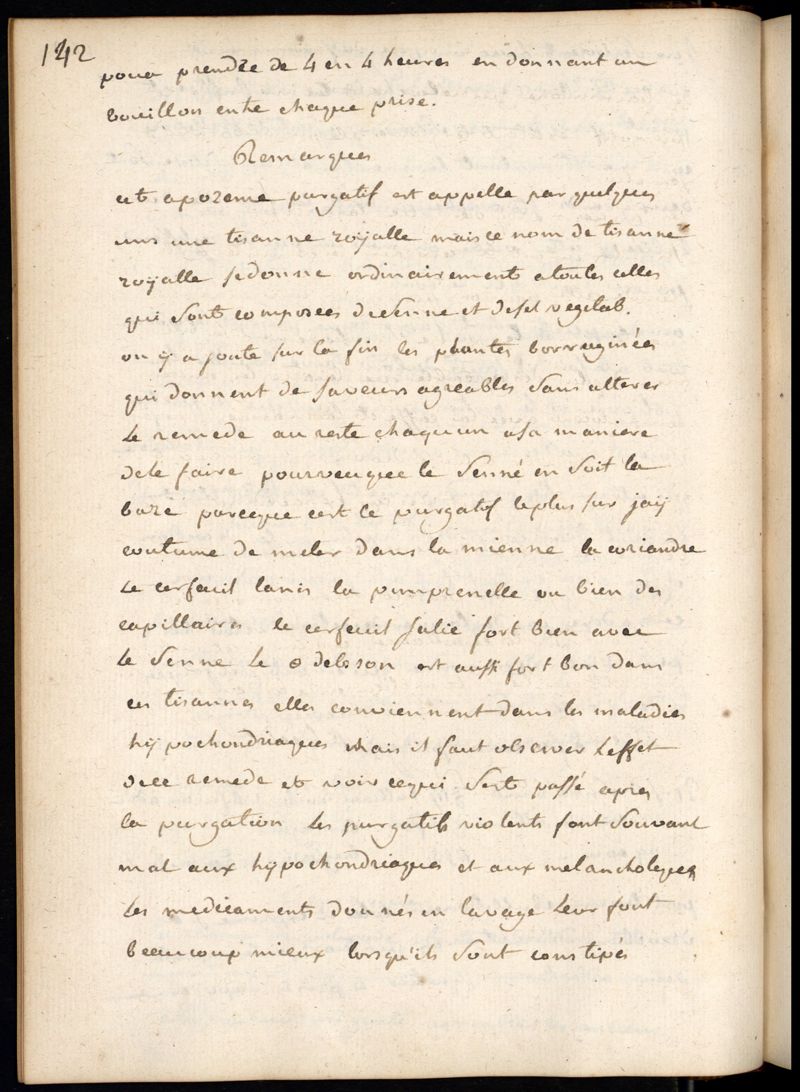 142
pour prendre de 4 en 4 heures en donnant un
bouillon entre chaque prise.
Remarques
cet apozeme purgatif est appelle par quelques
uns une tisanne roÿalle mais ce nom de tisanne
roÿalle se donne ordinairement a toutes celles
qui sont composees de senne et de sel vegetab.
on ÿ ajoute sur la fin les plantes borraginées
qui donnent de saveurs agreables sans alterer
le remede au reste chaqun a sa maniere
de le faire pourveu que le senné en soit la
baze parceque c'est le purgatif le plus sur jaÿ
coutume de meler dans la mienne la coriandre
le cerfeuil lanis la pimprenelle ou bien des
capillaires le cerfeuil salie fort bien avec
le senne le sel debson est aussi fort bon dans
ces tisannes elles conviennent dans les maladies
hÿpochondriaques mais il faut observer leffet
de ce remede et voir ce qui sest passé apres
la purgation les purgatifs violents font souvant
mal aux hÿpochondriaques et aux melancholiques
les medicaments donnés en lavage leur font
beaucoup mieux lorsqu'ils sont constipés